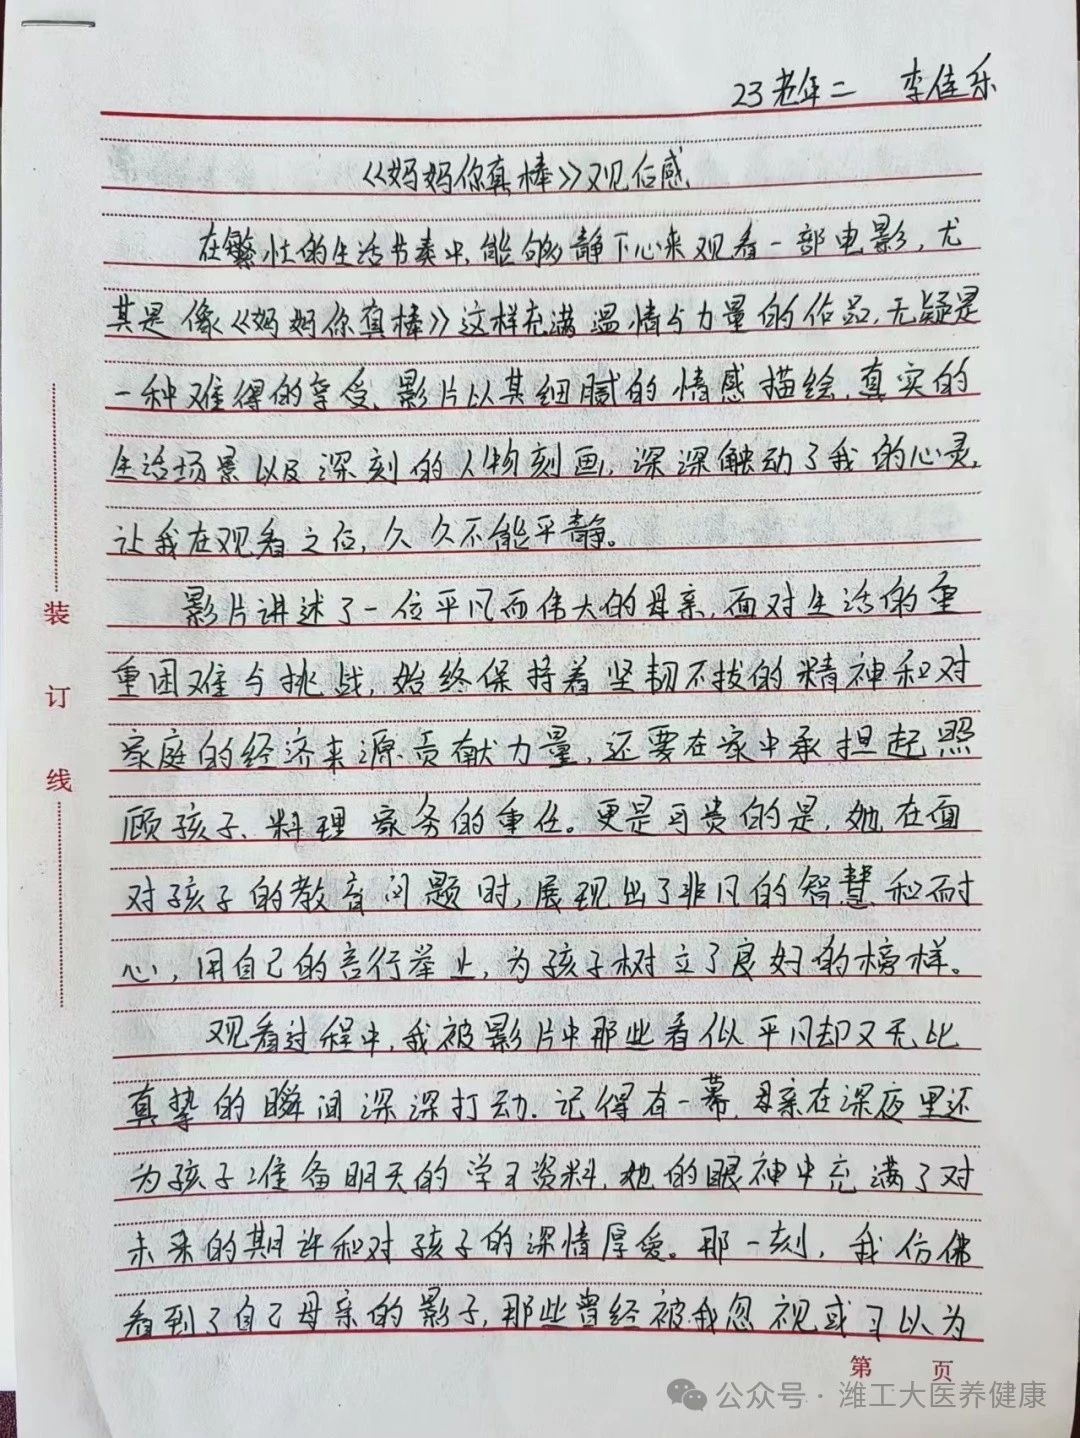 23老年二 李佳乐
《妈妈你真棒》观后感
在繁忙的生活节奏中,能够静下心来观看一部电影,尤
其是像《妈妈你真棒》这样充满温情与力量的作品,无疑是
一种难得的享受、影片以其细腻的情感描绘,真实的
生活场景以及深刻的人物刻画,深深触动了我的心灵,
让我在观看之后,久久不能平静。
影片讲述了一位平凡而伟大的母亲,面对生活的重
重困难与挑战,始终保持着坚韧不拔的精神和对
家庭的经济来源贡献力量,还要在家中承担起照
顾孩子、料理家务的重任。更是可贵的是,她在面
对孩子的教育问题时,展现出了非凡的智慧和耐
心,用自己的言行举止,为孩子树立了良好的榜样。
观看过程中,我被影片中那些看似平凡却又无比
真挚的瞬间深深打动.记得有一幕,母亲在深夜里还
为孩子准备明天的学习资料,她的眼神中充满了对
未来的期许和对孩子的深情厚爱。那一刻,我仿佛
看到了自己母亲的影子,那些曾经被我忽视或习以为
装
订
线
第 页
公众号·潍工大医养健康